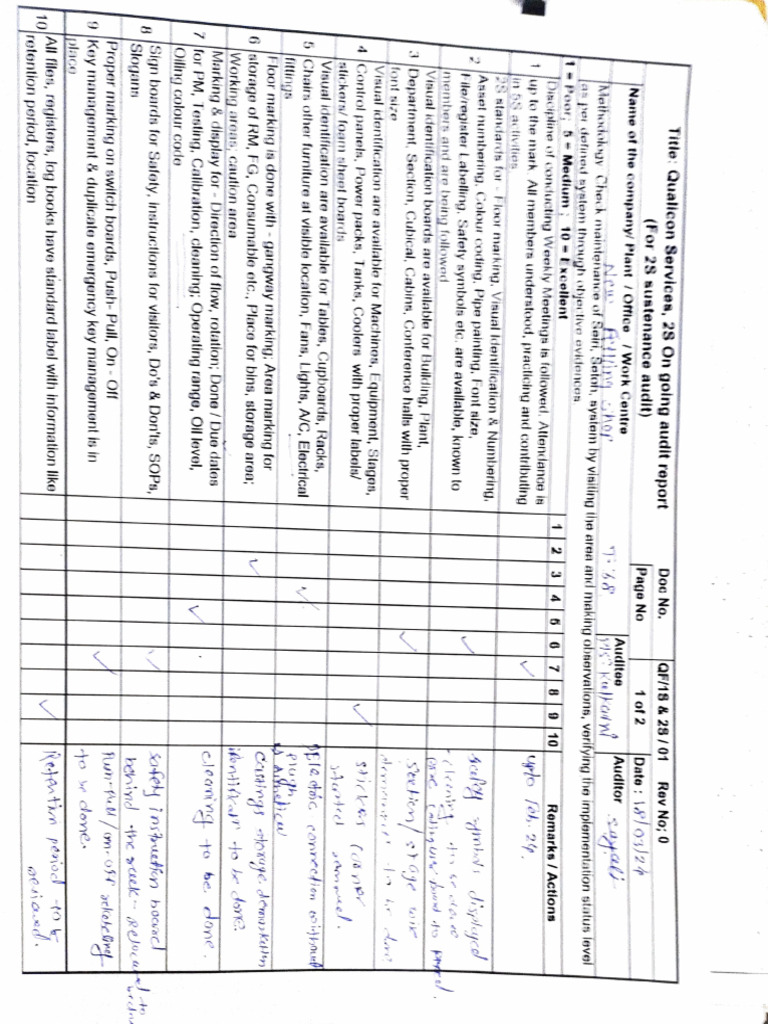 Title: Qualicon Services, 2S On going audit report
(For 2S sustenance audit)
Doc No. QF/1S & 2S / 01 Rev No; 0
Page No 1 of 2 Date : 18/03/24
Name of the company/ Plant / Office / Work Centre
Auditee Auditor
New Fitting Shop
Kulkarni Sayali
Methodology: Check maintenance of Seiri, Seiton, system by visiting the area and making observations, verifying the implementation status level
as per defined system through objective evidences
1 = Poor; 5 = Medium ; 10 = Excellent
1 2 3 4 5 6 7 8 9 10 Remarks / Actions
1 Discipline of conducting Weekly Meetings is followed. Attendance is
up to the mark. All members understood, practicing and contributing
in 5S activities
✓
upto Feb. 24.
2 2S standards for - Floor marking, Visual Identification & Numbering,
Asset numbering, Colour coding, Pipe painting, Font size,
File/register Labelling, Safety symbols etc. are available, known to
members and are being followed
✓
safety symbols displayed
cleaning to be done
3 Visual identification boards are available for Building, Plant,
Department, Section, Cubical, Cabins, Conference halls with proper
font size
✓
section/stage wise
to be done
4 Visual identification are available for Machines, Equipment, Stages,
Control panels, Power packs, Tanks, Coolers with proper labels/
stickers/ foam sheet boards
✓
stickers corner
started removed.
5 Visual identification are available for Tables, Cupboards, Racks,
Chairs other furniture at visible location, Fans, Lights, A/C, Electrical
fittings
✓
Electric connection without
6 Floor marking is done with - gangway marking; Area marking for
storage of RM, FG, Consumable etc., Place for bins, storage area;
Working areas, caution area
✓
castings storage demarkation
identificatn to be done.
7 Marking & display for - Direction of flow, rotation; Done / Due dates
for PM, Testing, Calibration, cleaning; Operating range, Oil level,
Oiling colour code
✓
cleaning to be done.
8 Sign boards for Safety, instructions for visitors, Do's & Don'ts, SOPs,
Slogans
✓
safety instruction board
behind the rack - relocated to
9 Proper marking on switch boards, Push- Pull, On - Off
Key management & duplicate emergency key management is in
place
✓
Push-pull/on-off
to be done.
10 All files, registers, log books have standard label with information like
retention period, location
✓
Retention period to be
revised.